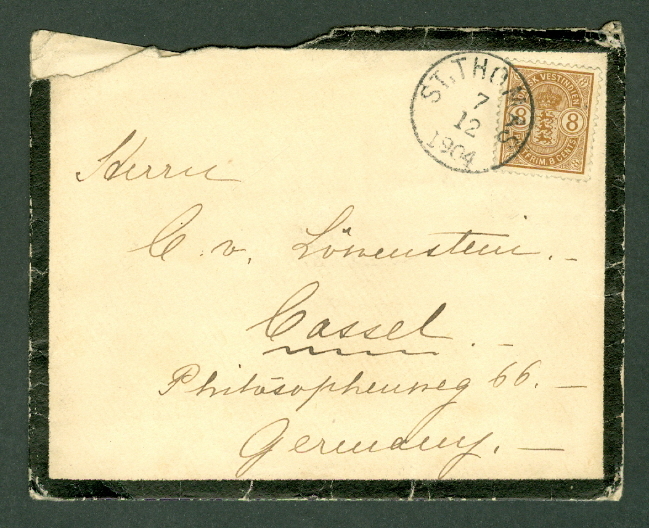 ST. THOMAS
7
12
1904
DANSK VESTINDIEN
8 8
FRIM. 8 CENTS
Herrn
C. v. Löwenstein.–
Cassel.–
Philosophenweg 66.–
Germany.–